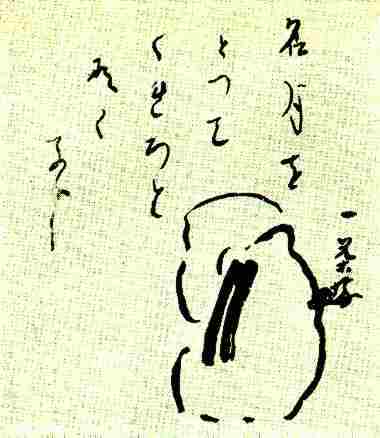 名月を
とつて
くれろと
なく
子かな
一茶